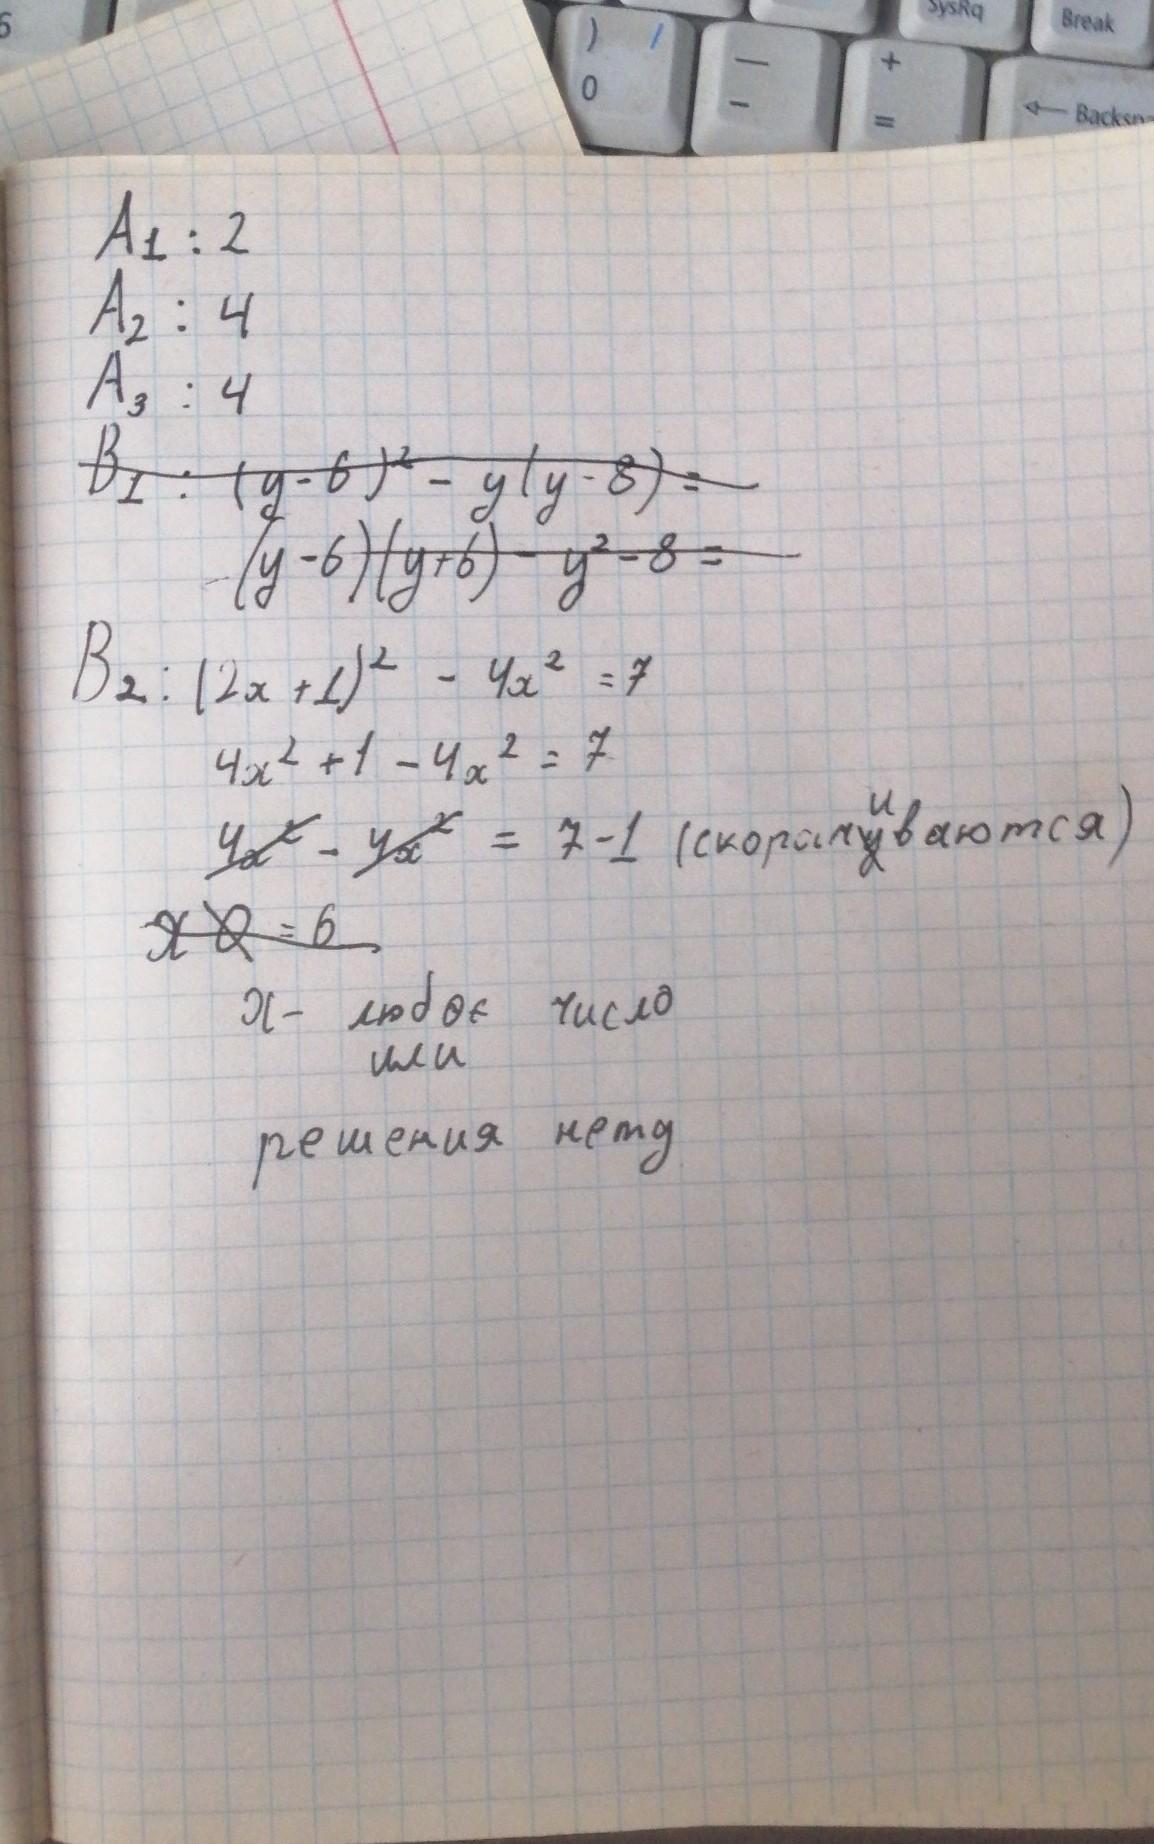 6
SysRq
Break
) /
0
—
-
+
=
← Backspa
A1 : 2
A2 : 4
A3 : 4
B1 : (y-6)² - y(y-8) =
(y-6)(y+6) - y²-8 =
B2 : (2x+1)² - 4x² = 7
4x² + 1 - 4x² = 7
4x² - 4x² = 7-1 (скорачиваются)
x 0 = 6
x - любое число
или
решения нету